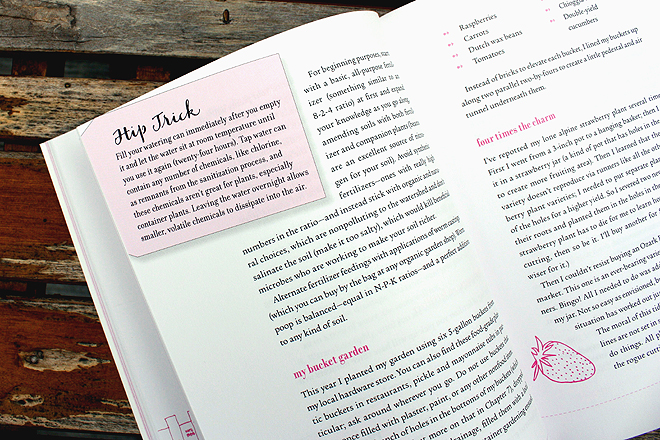 Hip Trick
Fill your watering can immediately after you empty
it and let the water sit at room temperature until
you use it again (twenty-four hours). Tap water can
contain any number of chemicals, like chlorine,
as remnants from the sanitization process, and
these chemicals aren't great for plants, especially
container plants. Leaving the water overnight allows
smaller, volatile chemicals to dissipate into the air.
For beginning purposes, start
with a basic, all-purpose fertil-
izer (something similar to an
8-2-4 ratio) at first and expand
your knowledge as you go along,
amending soils with both fertil-
izer and companion plants (beans
are an excellent source of
ges for your soil). Avoid synthetic
fertilizers—ones with really high
numbers in the ratio—and instead stick with organic and
ral choices, which are nonpolluting to the watershed and don't
salinate the soil (make it too salty), which would kill beneficial
microbes who are working to make your soil richer.
Alternate fertilizer feedings with applications of worm castings
(which you can buy by the bag at any organic garden shop). Worm
poop is balanced—equal in N-P-K ratios—and a perfect addition
to any kind of soil.
my bucket garden
This year I planned my garden using six 5-gallon buckets from
my local hardware store. You can also find these food-grade plas-
tic buckets in restaurants; pickle and mayonnaise tubs in par-
ticular; ask around wherever you go. Do not use buckets that
once filled with plaster, paint, or any other nonfood item.
nch of holes in the bottoms of my buckets
more on that in Chapter 7),
drainage, filled them with a
ainer gardening
Raspberries
Carrots
Dutch wax beans
Tomatoes
Chioggia
Double-yield
cucumbers
Instead of bricks to elevate each bucket, I lined my buckets up
along two parallel two-by-fours to create a little pedestal and air
tunnel underneath them.
four times the charm
I've reported my lone alpine strawberry plant several times
First I went from a 3-inch pot to a hanging basket; then I
in a strawberry jar (a kind of pot that has holes in the
to create more fruiting area). Then I learned that the
variety doesn't reproduce via runners like all the oth
berry plant varieties; I needed to put separate plan
of the holes for a higher yield. So I severed two ne
their roots and planted them in the holes in the
strawberry plant has to die for me to learn ho
cutting, then so be it. I'll buy another for
wiser for it.)
Then I couldn't resist buying an Ozark
market. This one is an ever-bearing varie
ners. Bingo! All I needed to do was ad
my jar. Not so easy as envisioned, b
situation has worked out ju
The moral of this
lines are not set in
do things. All p
the rogue curr